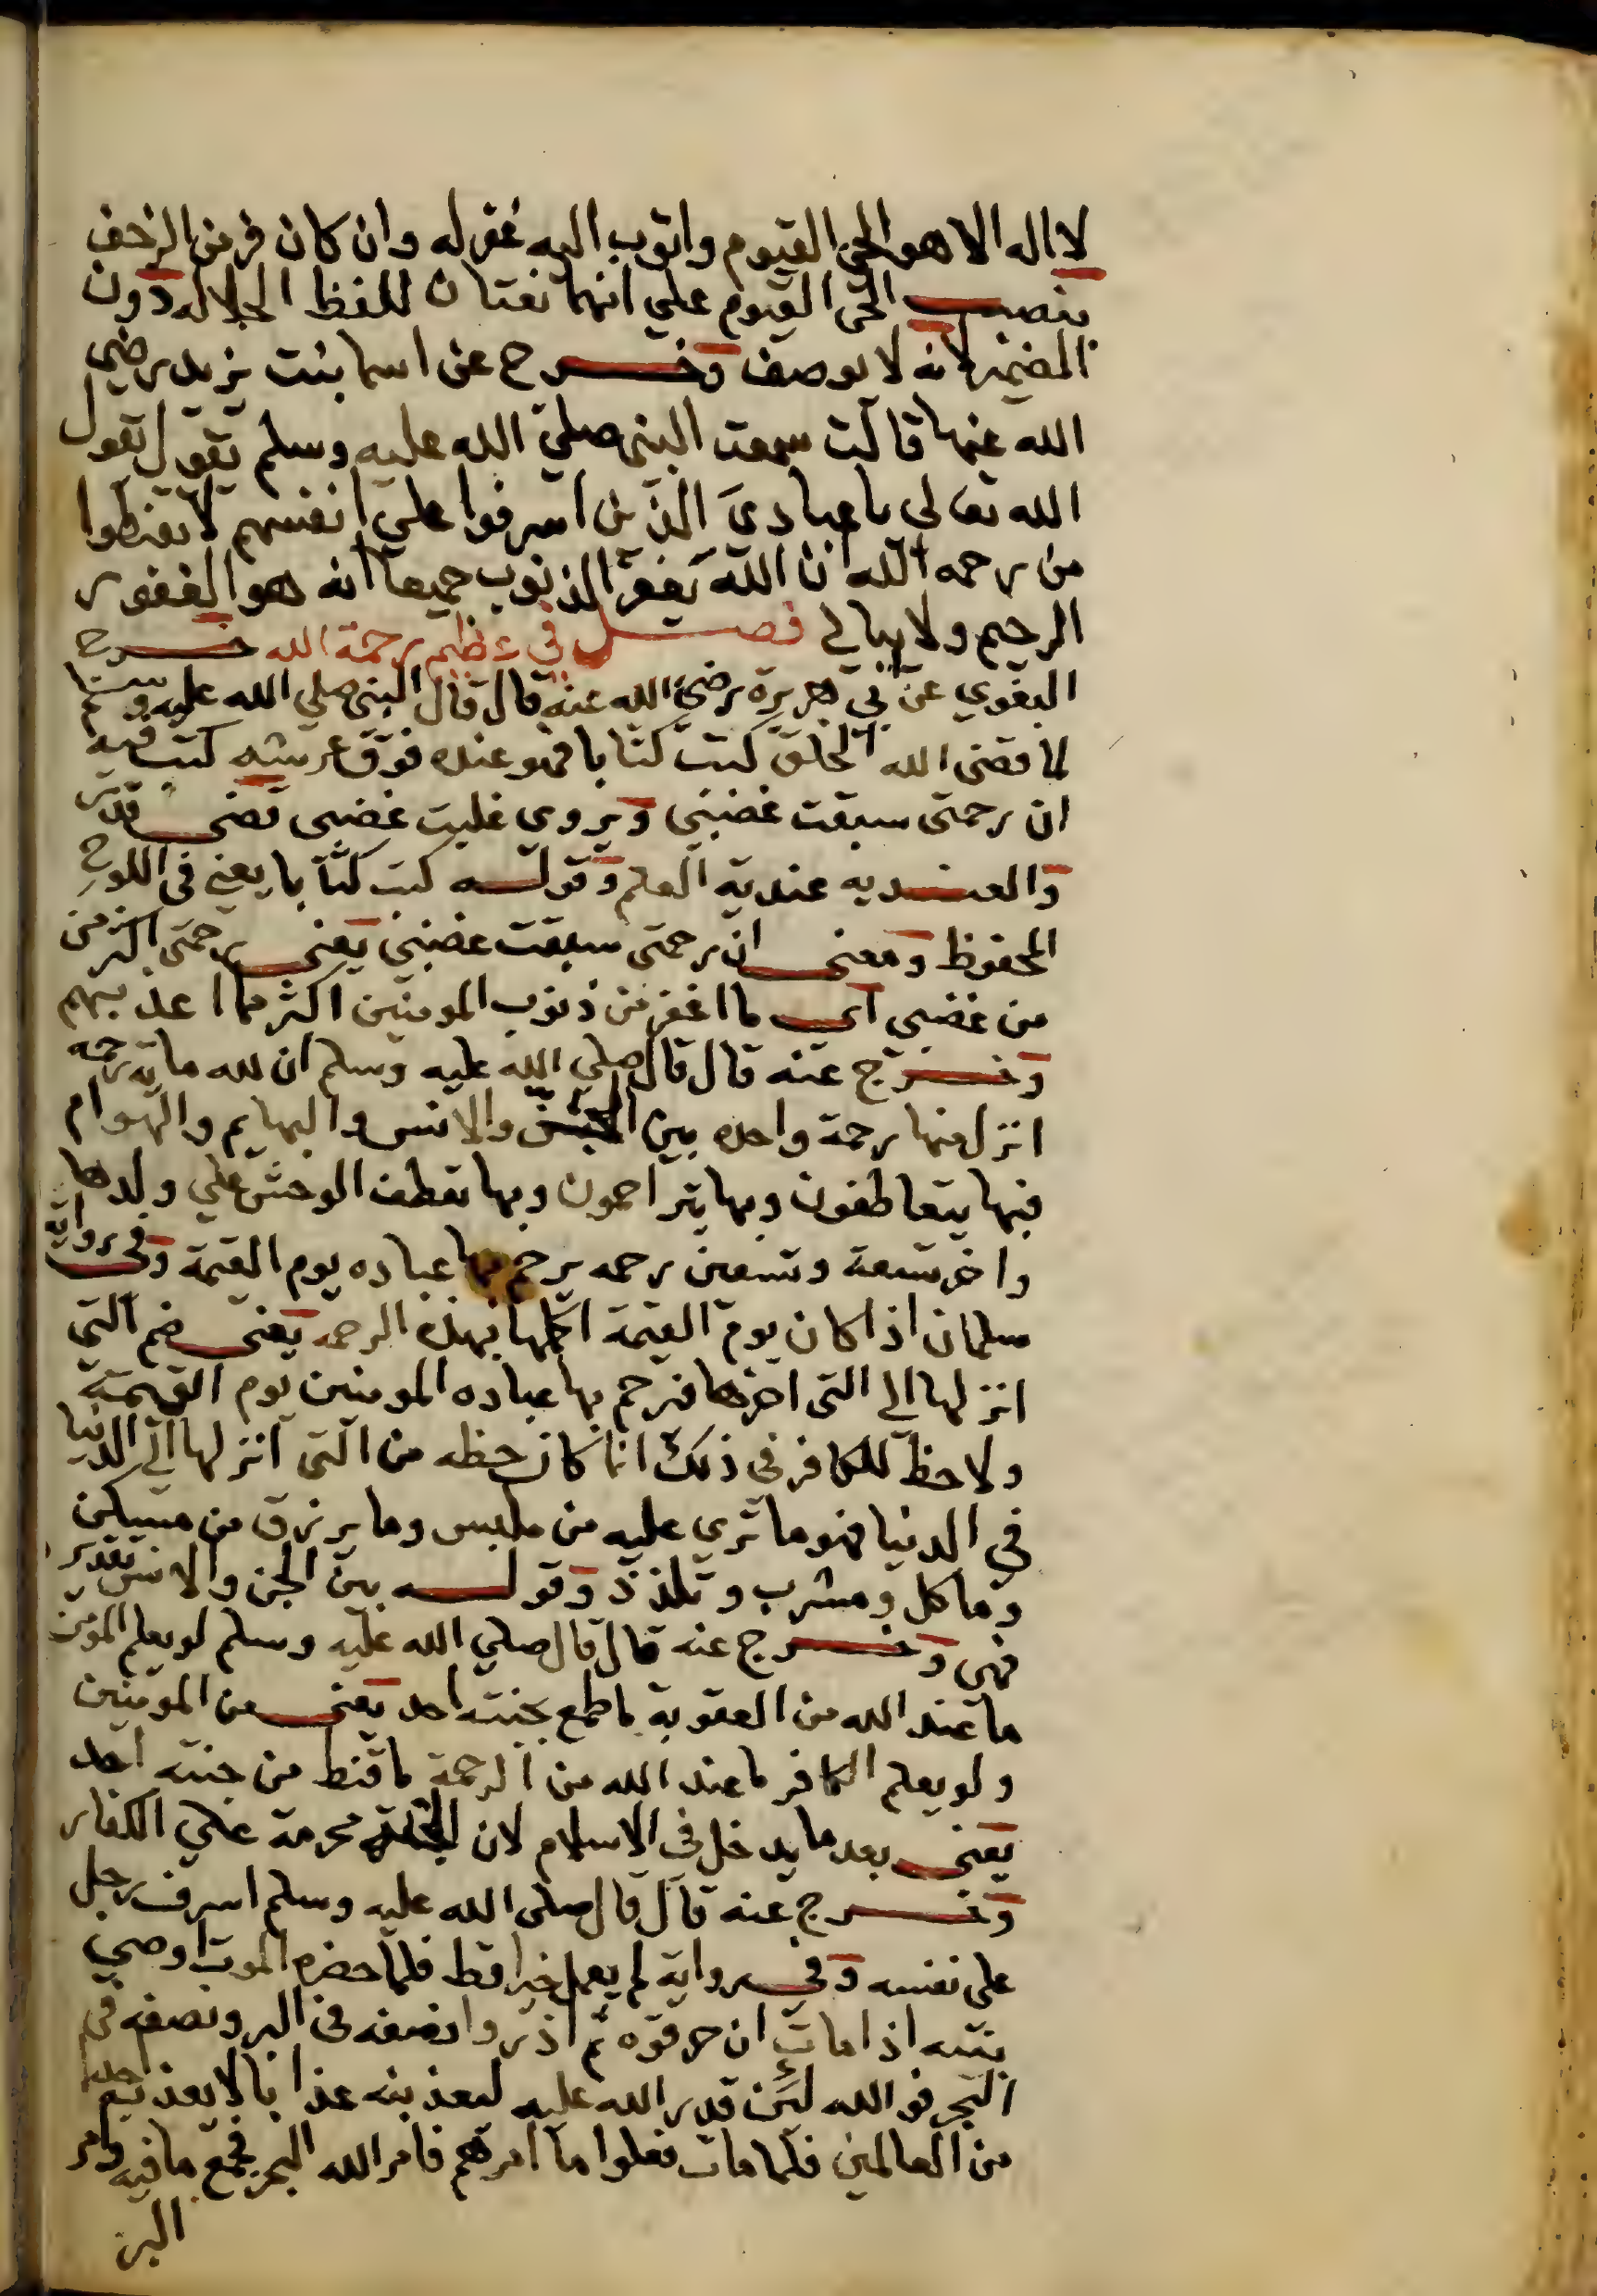 لا اله الا هو الحي القيوم واتوب اليه غفر له وان كان فر من الزحف
بنصب الحي القيوم علي انهما نعتان للفظ الجلاله دون
المضمر لانه لا يوصف وخرج عن اسما بنت يزيد رضي
الله عنها قالت سمعت النبي صلي الله عليه وسلم يقول يقول
الله تعالى يا عبادي الذين اسرفوا علي انفسهم لا تقنطوا
من رحمه الله ان الله يغفر الذنوب جميعا انه هو الغفور
الرحيم ولا يبالي فصل في عظيم رحمة الله خرج
البغوي عن ابي هريرة رضي الله عنه قال قال النبي صلي الله عليه وسلم
لما قضى الله الخلق كتب كتابا فهو عنده فوق عرشه كتب فيه
ان رحمتى سبقت غضبي ويروي غلبت غضبى قضى قدر
والعنديه عندية العلم وقوله كتب كتابا يعني في اللوح
المحفوظ ومعنى ان رحمتى سبقت غضبي يعنى رحمتى اكثر من
من غضبي اي ما اغفر من ذنوب المومنين اكثر مما اعذبهم
وخرج عنه قال قال صلي الله عليه وسلم ان لله ماية رحمه
انزل منها رحمة واحده بين الجن والانس والبهايم والهوام
فبها يتعاطفون وبها يتراحمون وبها تعطف الوحش علي ولدها
واخر تسعة وتسعين رحمه يرحم بها عباده يوم القيمة وفي رواية
سلمان اذا كان يوم القيمة اكملها بهذه الرحمه يعنى ضم التي
انزلها الي التى اخرها فيرحم بها عباده المومنين يوم القيمة
ولا حظ للكافر في ذلك انما كان حظه من التى انزلها الي الدنيا
في الدنيا فهو ما تري عليه من ملبس وما يرزق من مسكن
وماكل ومشرب وتلذذ وقوله بين الجن والانس تقدير
فهى وخرج عنه قال قال صلي الله عليه وسلم لو يعلم المؤمن
ما عند الله من العقوبة ما طمع بجنته احد يعنى من المومنين
ولو يعلم الكافر ما عند الله من الرحمة ما قنط من جنته احد
يعنى بعد ما يدخل في الاسلام لان الجنة محرمة علي الكفار
وخرج عنه قال قال صلى الله عليه وسلم اسرف رجل
على نفسه وفي رواية لم يعمل خيرا قط فلما حضره الموت اوصي
بنيه اذا مات ان حرقوه ثم اذروا نصفه في البر ونصفه في
البحر فوالله لئن قدر الله عليه ليعذبنه عذابا لا يعذبه احدا
من العالمين فلما مات فعلوا ما امرهم فامر الله البحر فجمع ما فيه وامر
البر